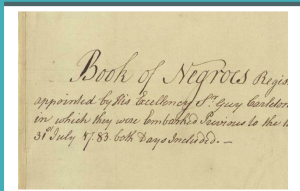 Book of Negroes Regis
appointed by His Excellency Sr. Guy Carleton
in which they were Embarked Previous to the
31st July 1783. both Days Included. —